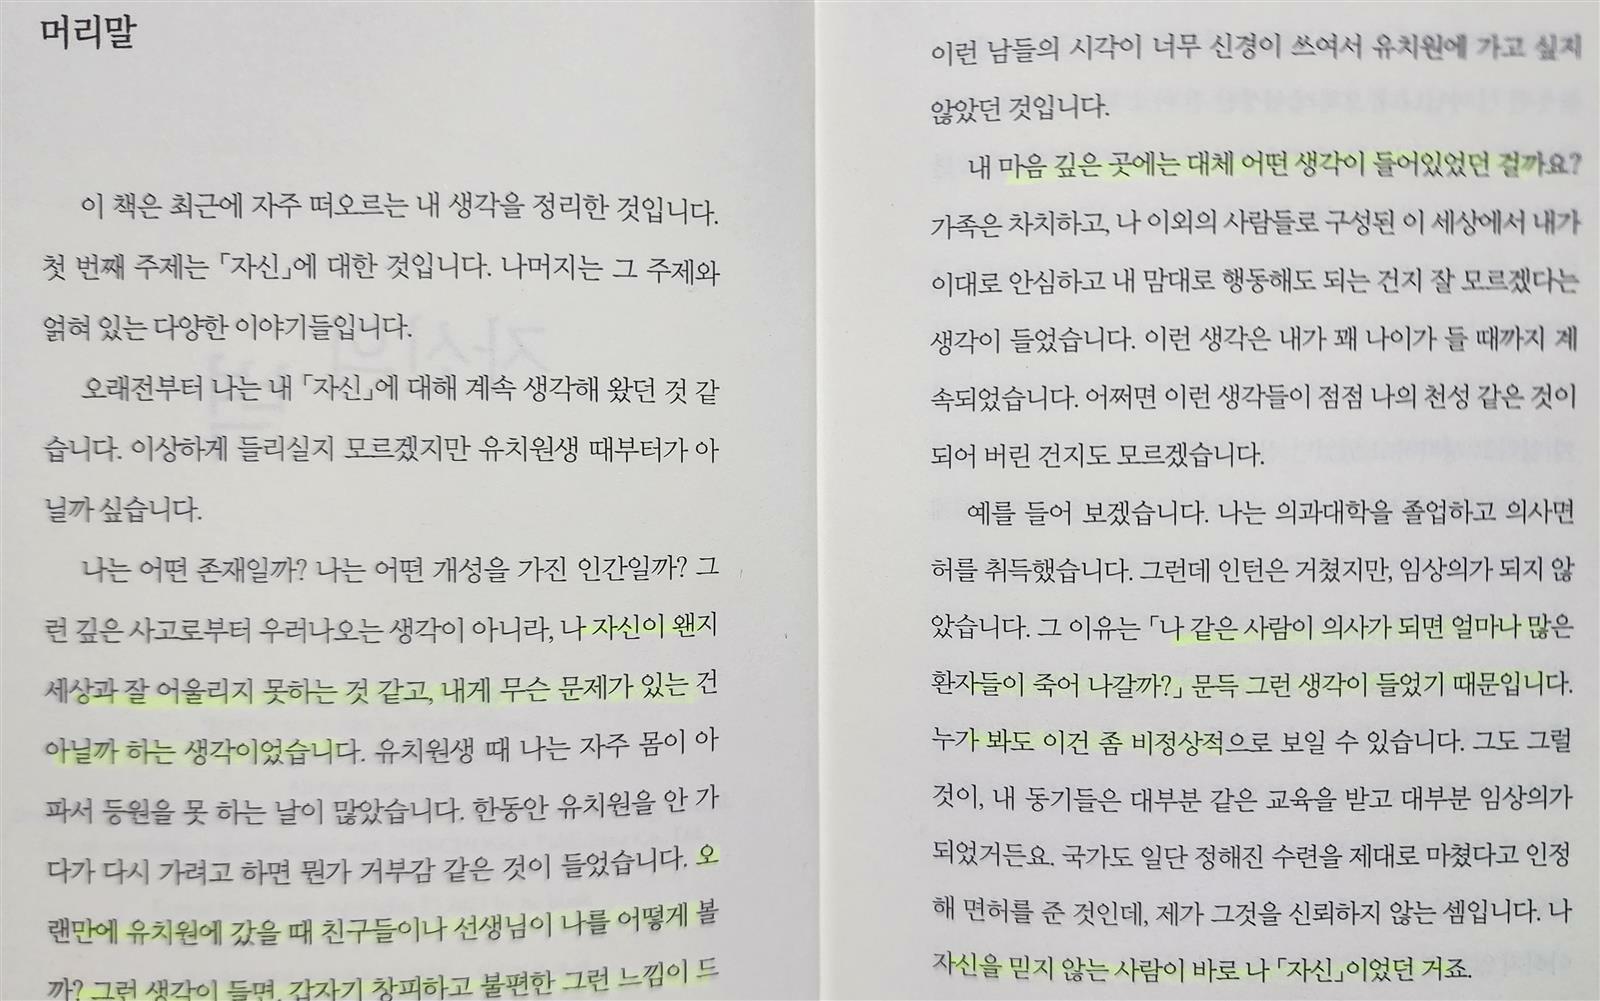 머리말
이 책은 최근에 자주 떠오르는 내 생각을 정리한 것입니다.
첫 번째 주제는 「자신」에 대한 것입니다. 나머지는 그 주제와
얽혀 있는 다양한 이야기들입니다.
오래전부터 나는 내 「자신」에 대해 계속 생각해 왔던 것 같
습니다. 이상하게 들리실지 모르겠지만 유치원생 때부터가 아
닐까 싶습니다.
나는 어떤 존재일까? 나는 어떤 개성을 가진 인간일까? 그
런 깊은 사고로부터 우러나오는 생각이 아니라, 나 자신이 왠지
세상과 잘 어울리지 못하는 것 같고, 내게 무슨 문제가 있는 건
아닐까 하는 생각이었습니다. 유치원생 때 나는 자주 몸이 아
파서 등원을 못 하는 날이 많았습니다. 한동안 유치원을 안 가
다가 다시 가려고 하면 뭔가 거부감 같은 것이 들었습니다. 오
랜만에 유치원에 갔을 때 친구들이나 선생님이 나를 어떻게 볼
까? 그런 생각이 들면, 갑자기 창피하고 불편한 그런 느낌이 드
이런 남들의 시각이 너무 신경이 쓰여서 유치원에 가고 싶지
않았던 것입니다.
내 마음 깊은 곳에는 대체 어떤 생각이 들어있었던 걸까요?
가족은 차치하고, 나 이외의 사람들로 구성된 이 세상에서 내가
이대로 안심하고 내 맘대로 행동해도 되는 건지 잘 모르겠다는
생각이 들었습니다. 이런 생각은 내가 꽤 나이가 들 때까지 계
속되었습니다. 어쩌면 이런 생각들이 점점 나의 천성 같은 것이
되어 버린 건지도 모르겠습니다.
예를 들어 보겠습니다. 나는 의과대학을 졸업하고 의사면
허를 취득했습니다. 그런데 인턴은 거쳤지만, 임상의가 되지 않
았습니다. 그 이유는 「나 같은 사람이 의사가 되면 얼마나 많은
환자들이 죽어 나갈까?」 문득 그런 생각이 들었기 때문입니다.
누가 봐도 이건 좀 비정상적으로 보일 수 있습니다. 그도 그럴
것이, 내 동기들은 대부분 같은 교육을 받고 대부분 임상의가
되었거든요. 국가도 일단 정해진 수련을 제대로 마쳤다고 인정
해 면허를 준 것인데, 제가 그것을 신뢰하지 않는 셈입니다. 나
자신을 믿지 않는 사람이 바로 나 「자신」이었던 거죠.